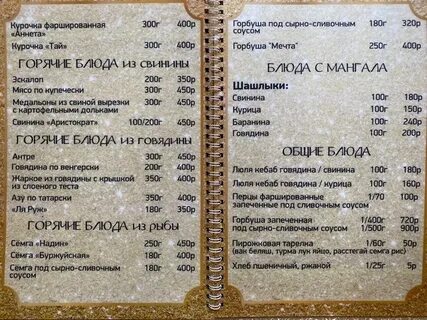 Курочка фаршированная 300г 400р
«Аннета»
Курочка «Тай» 300г 400р
ГОРЯЧИЕ БЛЮДА ИЗ СВИНИНЫ
Эскалоп 200г 350р
Мясо по купечески 300г 450р
Медальоны из свиной вырезки 300г 450р
с картофельными дольками
Свинина «Аристократ» 100/200г 450р
ГОРЯЧИЕ БЛЮДА ИЗ ГОВЯДИНЫ
Антре 300г 400р
Говядина по венгерски 300г 400р
Жаркое из говядины с крышкой 350г 400р
из слоеного теста
Азу по татарски 350г 400р
«Ля Руж» 180г 350р
ГОРЯЧИЕ БЛЮДА ИЗ РЫБЫ
Сёмга «Надин» 250г 450р
Сёмга «Буржуйская» 180г 400р
Сёмга под сырно-сливочным 180г 400р
соусом
Горбуша под сырно-сливочным 180г 320р
соусом
Горбуша "Мечта" 250г 400р
БЛЮДА С МАНГАЛА
Шашлыки:
Свинина 100г 180р
Курица 100г 150р
Баранина 100г 240р
Говядина 100г 200р
ОБЩИЕ БЛЮДА
Люля кебаб говядина / свинина 100г 180р
Люля кебаб говядина / курица 100г 160р
Перцы фаршированные 1/70 100р
запеченные под сливочным соусом
Горбуша запеченная 1/400г 720р
под сырно-сливочным соусом 1/500г 900р
Пирожковая тарелка 1/60г 50р
(вак беляш, турма лук яйцо, расстегай сёмга рис)
Хлеб пшеничный, ржаной 1/25г 5р